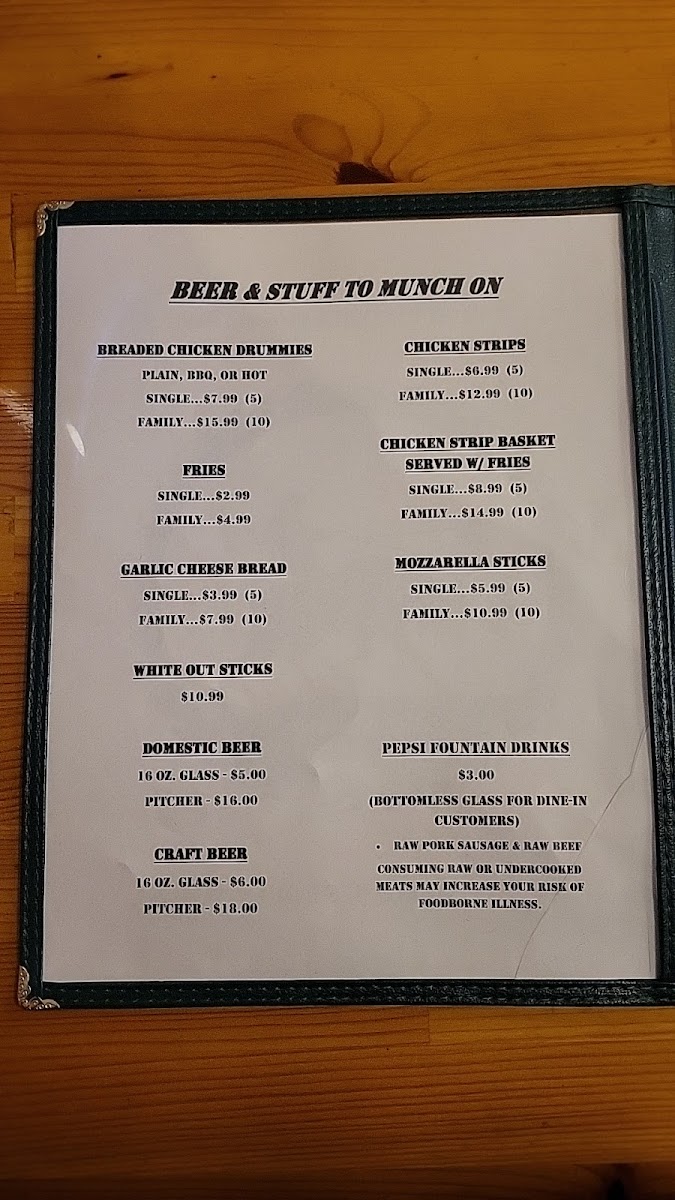 BEER & STUFF TO MUNCH ON
BREADED CHICKEN DRUMMIES
PLAIN, BBQ, OR HOT
SINGLE...$7.99 (5)
FAMILY...$15.99 (10)
FRIES
SINGLE...$2.99
FAMILY...$4.99
GARLIC CHEESE BREAD
SINGLE...$3.99 (5)
FAMILY...$7.99 (10)
WHITE OUT STICKS
$10.99
DOMESTIC BEER
16 OZ. GLASS - $5.00
PITCHER - $16.00
CRAFT BEER
16 OZ. GLASS - $6.00
PITCHER - $18.00
CHICKEN STRIPS
SINGLE...$6.99 (5)
FAMILY...$12.99 (10)
CHICKEN STRIP BASKET
SERVED W/ FRIES
SINGLE...$8.99 (5)
FAMILY...$14.99 (10)
MOZZARELLA STICKS
SINGLE...$5.99 (5)
FAMILY...$10.99 (10)
PEPSI FOUNTAIN DRINKS
$3.00
(BOTTOMLESS GLASS FOR DINE-IN
CUSTOMERS)
• RAW PORK SAUSAGE & RAW BEEF
CONSUMING RAW OR UNDERCOOKED
MEATS MAY INCREASE YOUR RISK OF
FOODBORNE ILLNESS.